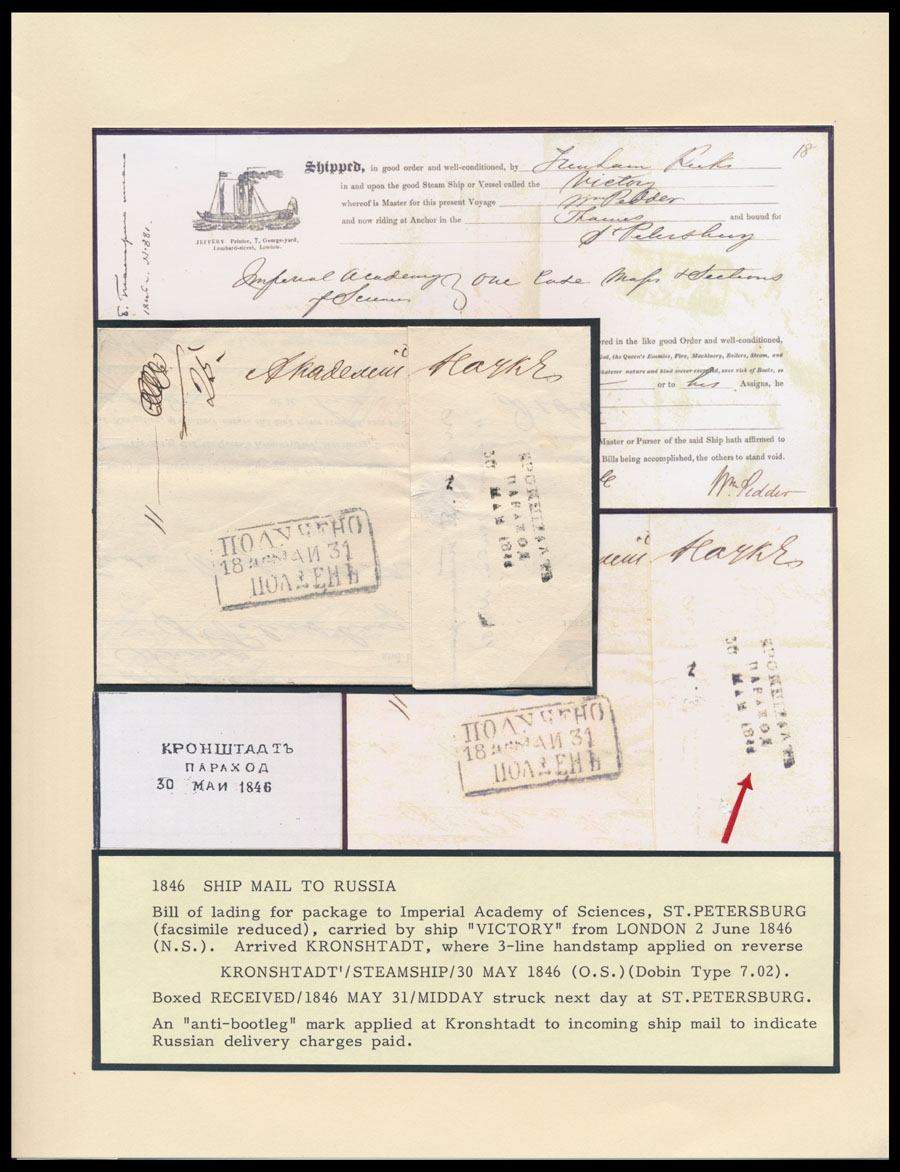 18
Shipped, in good order and well-conditioned, by
in and upon the good Steam Ship or Vessel called the Victory
whereof is Master for this present Voyage Wm Pedder
and now riding at Anchor in the Thames and bound for
St Petersburg
JEFFERY Printer, 7, George-yard,
Lombard-street, London.
Imperial Academy One Case Maps & Sections
of Sciences
red in the like good Order and well-conditioned,
the Queen's Enemies, Fire, Machinery, Boilers, Steam, and
or to his Assigns, he
Master or Purser of the said Ship hath affirmed to
Bills being accomplished, the others to stand void.
Wm Pedder
Академій Наукъ
КРОНШТАДТЪ
ПАРАХОД
30 МАИ 184
ПОЛУЧЕНО
18 МАИ 31
ПОЛДЕНЬ
Наукъ
КРОНШТАДТЪ
ПАРАХОД
30 МАИ 184
ПОЛУЧЕНО
18 МАИ 31
ПОЛДЕНЬ
КРОНШТАДТЪ
ПАРАХОД
30 МАИ 1846
1846 SHIP MAIL TO RUSSIA
Bill of lading for package to Imperial Academy of Sciences, ST.PETERSBURG
(facsimile reduced), carried by ship "VICTORY" from LONDON 2 June 1846
(N.S.). Arrived KRONSHTADT, where 3-line handstamp applied on reverse
KRONSHTADT'/STEAMSHIP/30 MAY 1846 (O.S.)(Dobin Type 7.02).
Boxed RECEIVED/1846 MAY 31/MIDDAY struck next day at ST.PETERSBURG.
An "anti-bootleg" mark applied at Kronshtadt to incoming ship mail to indicate
Russian delivery charges paid.